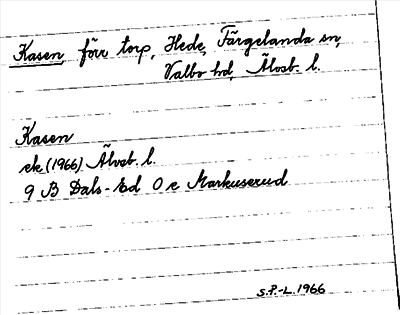 Kasen, förr torp, Hede, Färgelanda sn,
Valbo hd, Älvsb. l.
Kasen
ek (1966) Älvsb. l.
9 B Dals-Ed 0 e Markuserud
S.P.-L. 1966